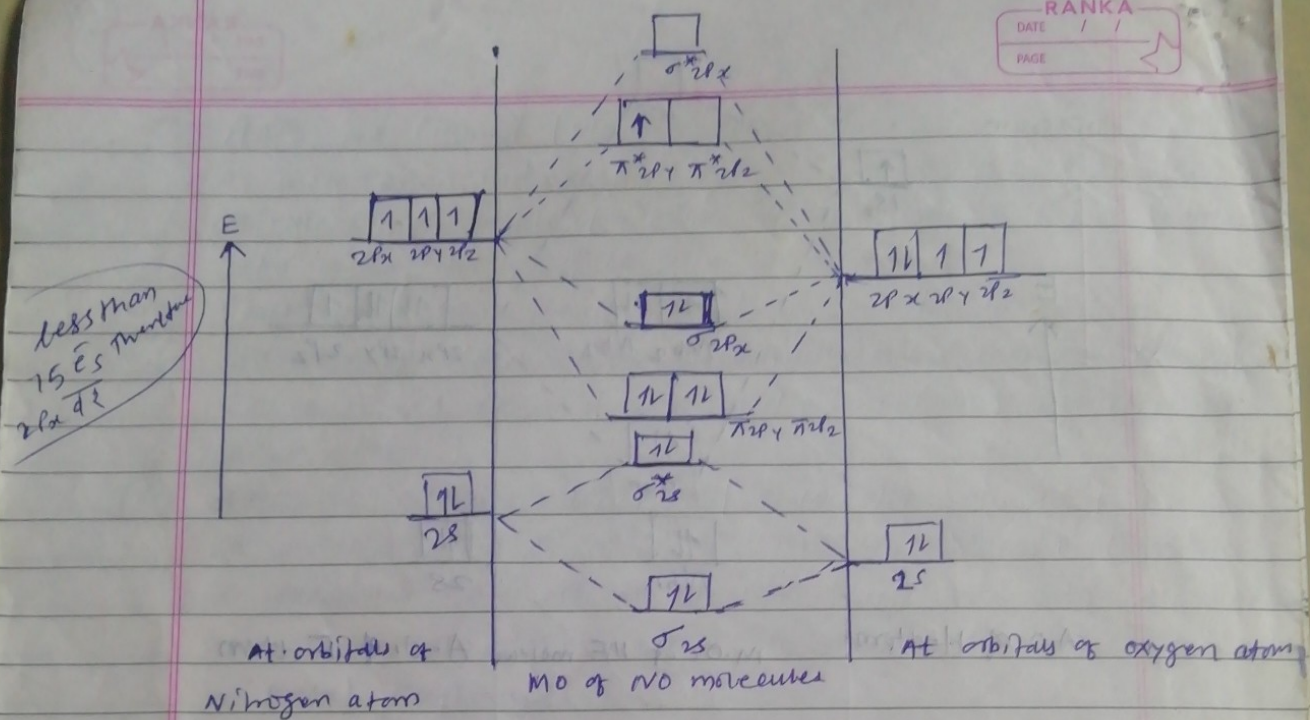 RANKA
DATE / /
PAGE
σ*2Px
π*2Py π*2Pz
E
2Px 2Py 2Pz
2Px 2Py 2Pz
σ2Px
less than
15 ēs therefore
2Px
π2Py π2Pz
σ*2s
2S
2S
σ2s
At. orbitals of
Nitrogen atom
MO of NO molecules
At orbitals of oxygen atom